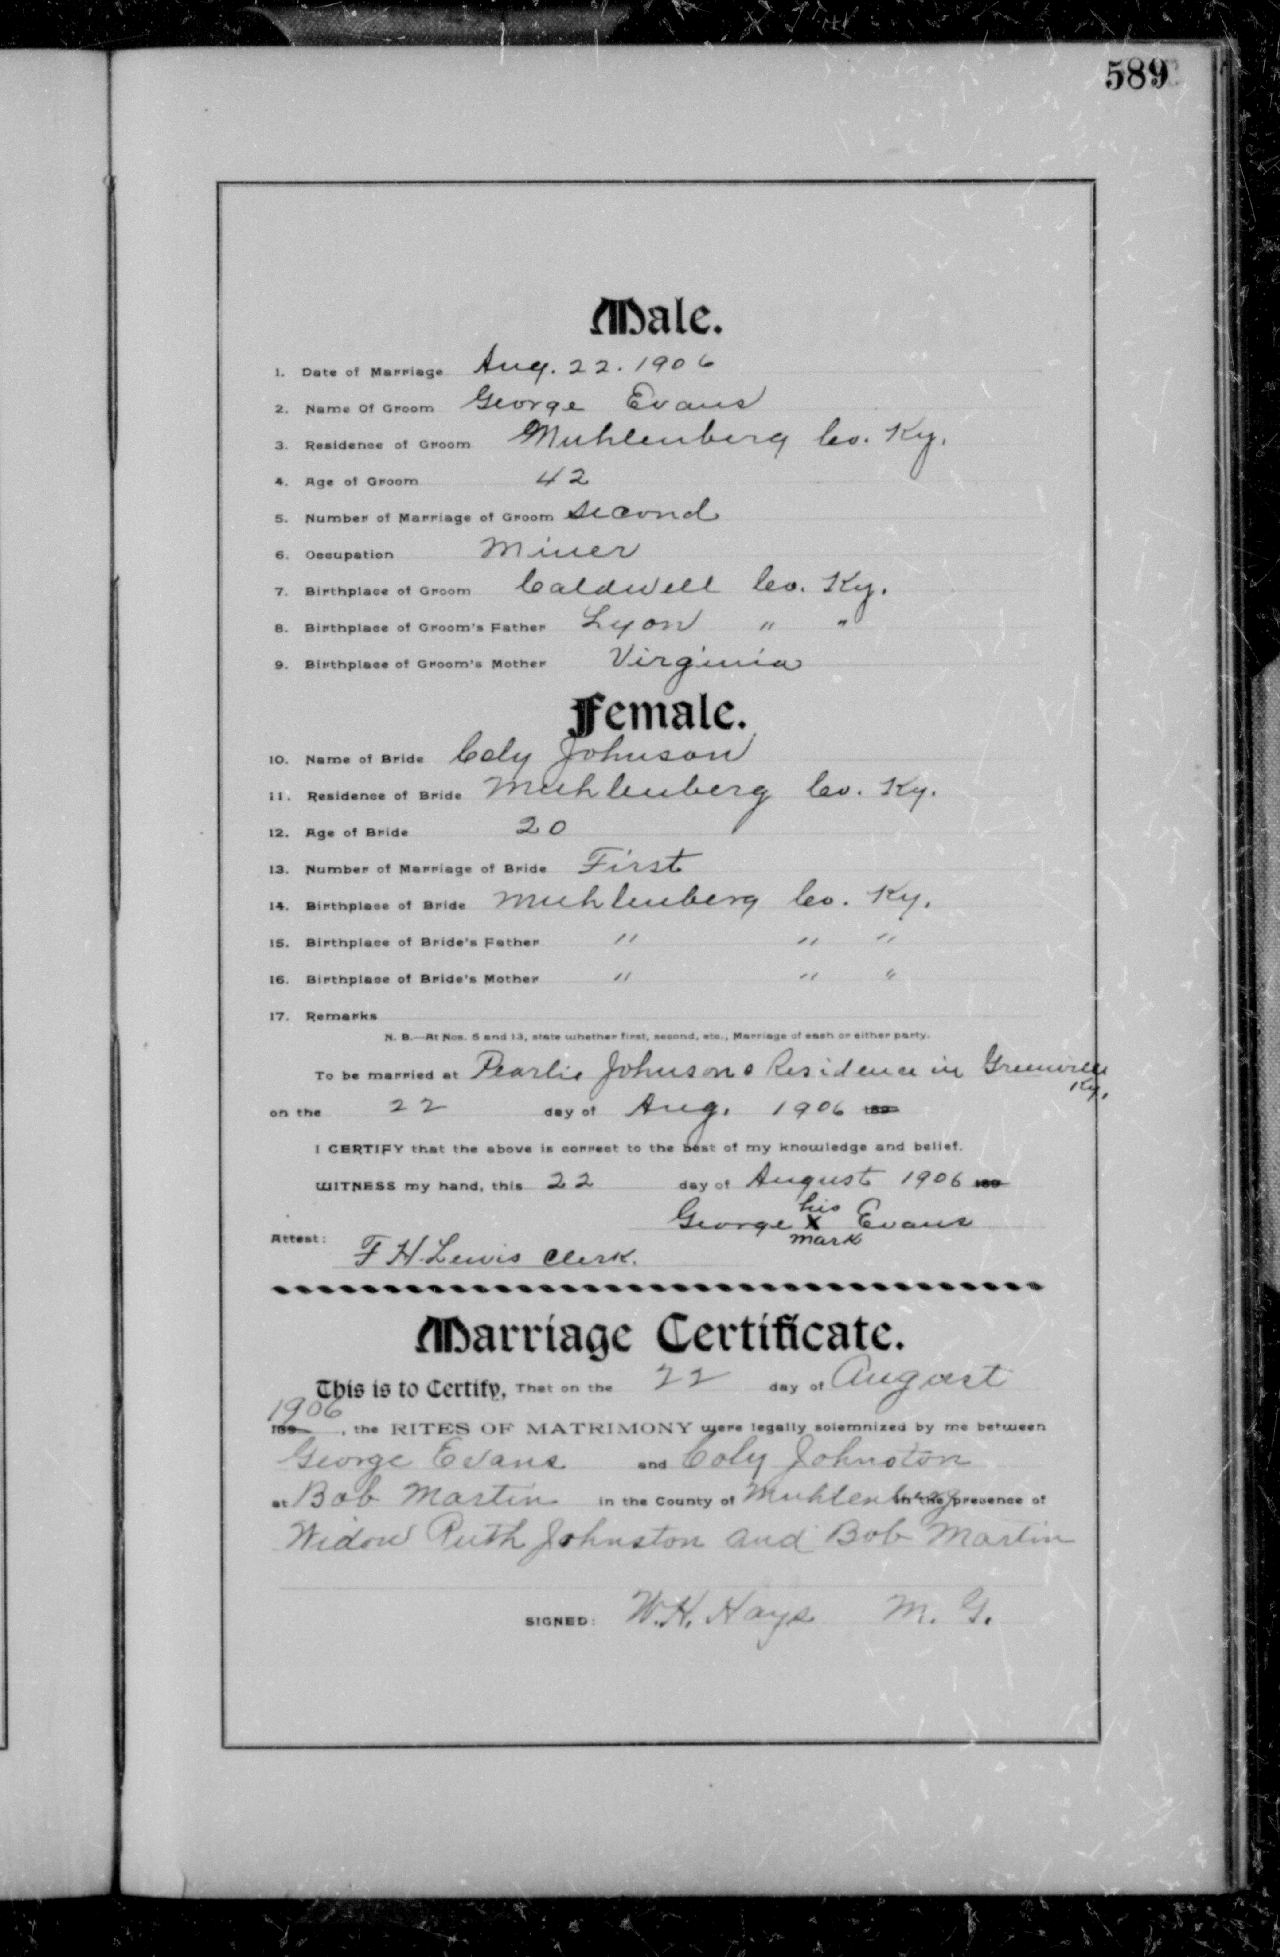 589
Male.
1. Date of Marriage Aug. 22. 1906
2. Name Of Groom George Evans
3. Residence of Groom Muhlenberg Co. Ky.
4. Age of Groom 42
5. Number of Marriage of Groom second
6. Occupation Miner
7. Birthplace of Groom Caldwell Co. Ky.
8. Birthplace of Groom's Father Lyon " "
9. Birthplace of Groom's Mother Virginia
Female.
10. Name of Bride Coly Johnson
11. Residence of Bride Muhlenberg Co. Ky.
12. Age of Bride 20
13. Number of Marriage of Bride First
14. Birthplace of Bride Muhlenberg Co. Ky.
15. Birthplace of Bride's Father " " "
16. Birthplace of Bride's Mother " " "
17. Remarks
N. B.—At Nos. 5 and 13, state whether first, second, etc., Marriage of each or either party.
To be married at Pearlie Johnsons Residence in Greenville Ky.
on the 22 day of Aug. 1906 189
I CERTIFY that the above is correct to the best of my knowledge and belief.
WITNESS my hand, this 22 day of August 1906 189
his
George X Evans
mark
Attest: F H Lewis Clerk.
Marriage Certificate.
This is to Certify, That on the 22 day of August
1906
189 , the RITES OF MATRIMONY were legally solemnized by me between
George Evans and Coly Johnston
at Bob Martin in the County of Muhlenberg in the presence of
Widow Ruth Johnston and Bob Martin
SIGNED: W.H. Hays M. G.